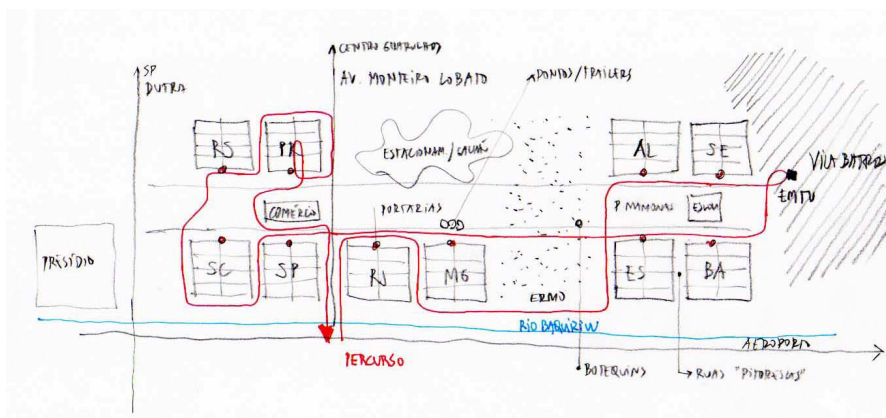 CENTRO GUARULHOS
SP
DUTRA
AV. MONTEIRO LOBATO
PONTOS/TRAILERS
RS
PR
ESTACIONAM./GALPÃO
AL
SE
VILA BARROS
EMTU
COMÉRCIO
PORTARIAS
P MAMONAS
ESCOLA
PRESÍDIO
SC
SP
RJ
MG
ES
BA
ERMO
RIO BAQUIRIVU
AEROPORTO
PERCURSO
BOTEQUINS
RUAS "PITORESCAS"